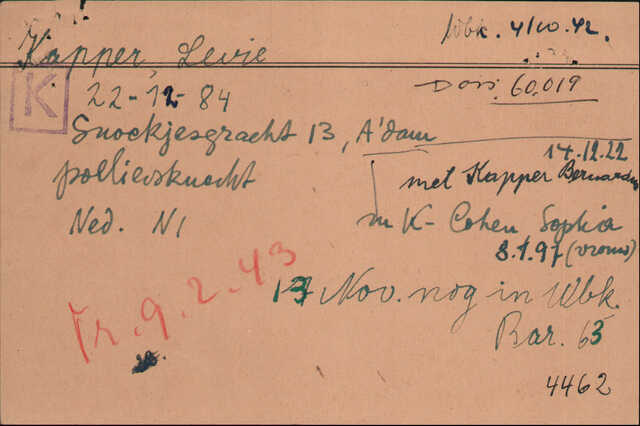 Wbk. 4/10.42.
Kapper, Levie
K
Dos. 60.019
22-12-84
Snoekjesgracht 13, A'dam
14.12.22
poeliersknecht
met Kapper Bernardus
Ned. NI
m K- Cohen Sophia
8.1.97 (vrouw)
Tr. 9.2.43
17 Nov. nog in Wbk.
Bar. 65
4462